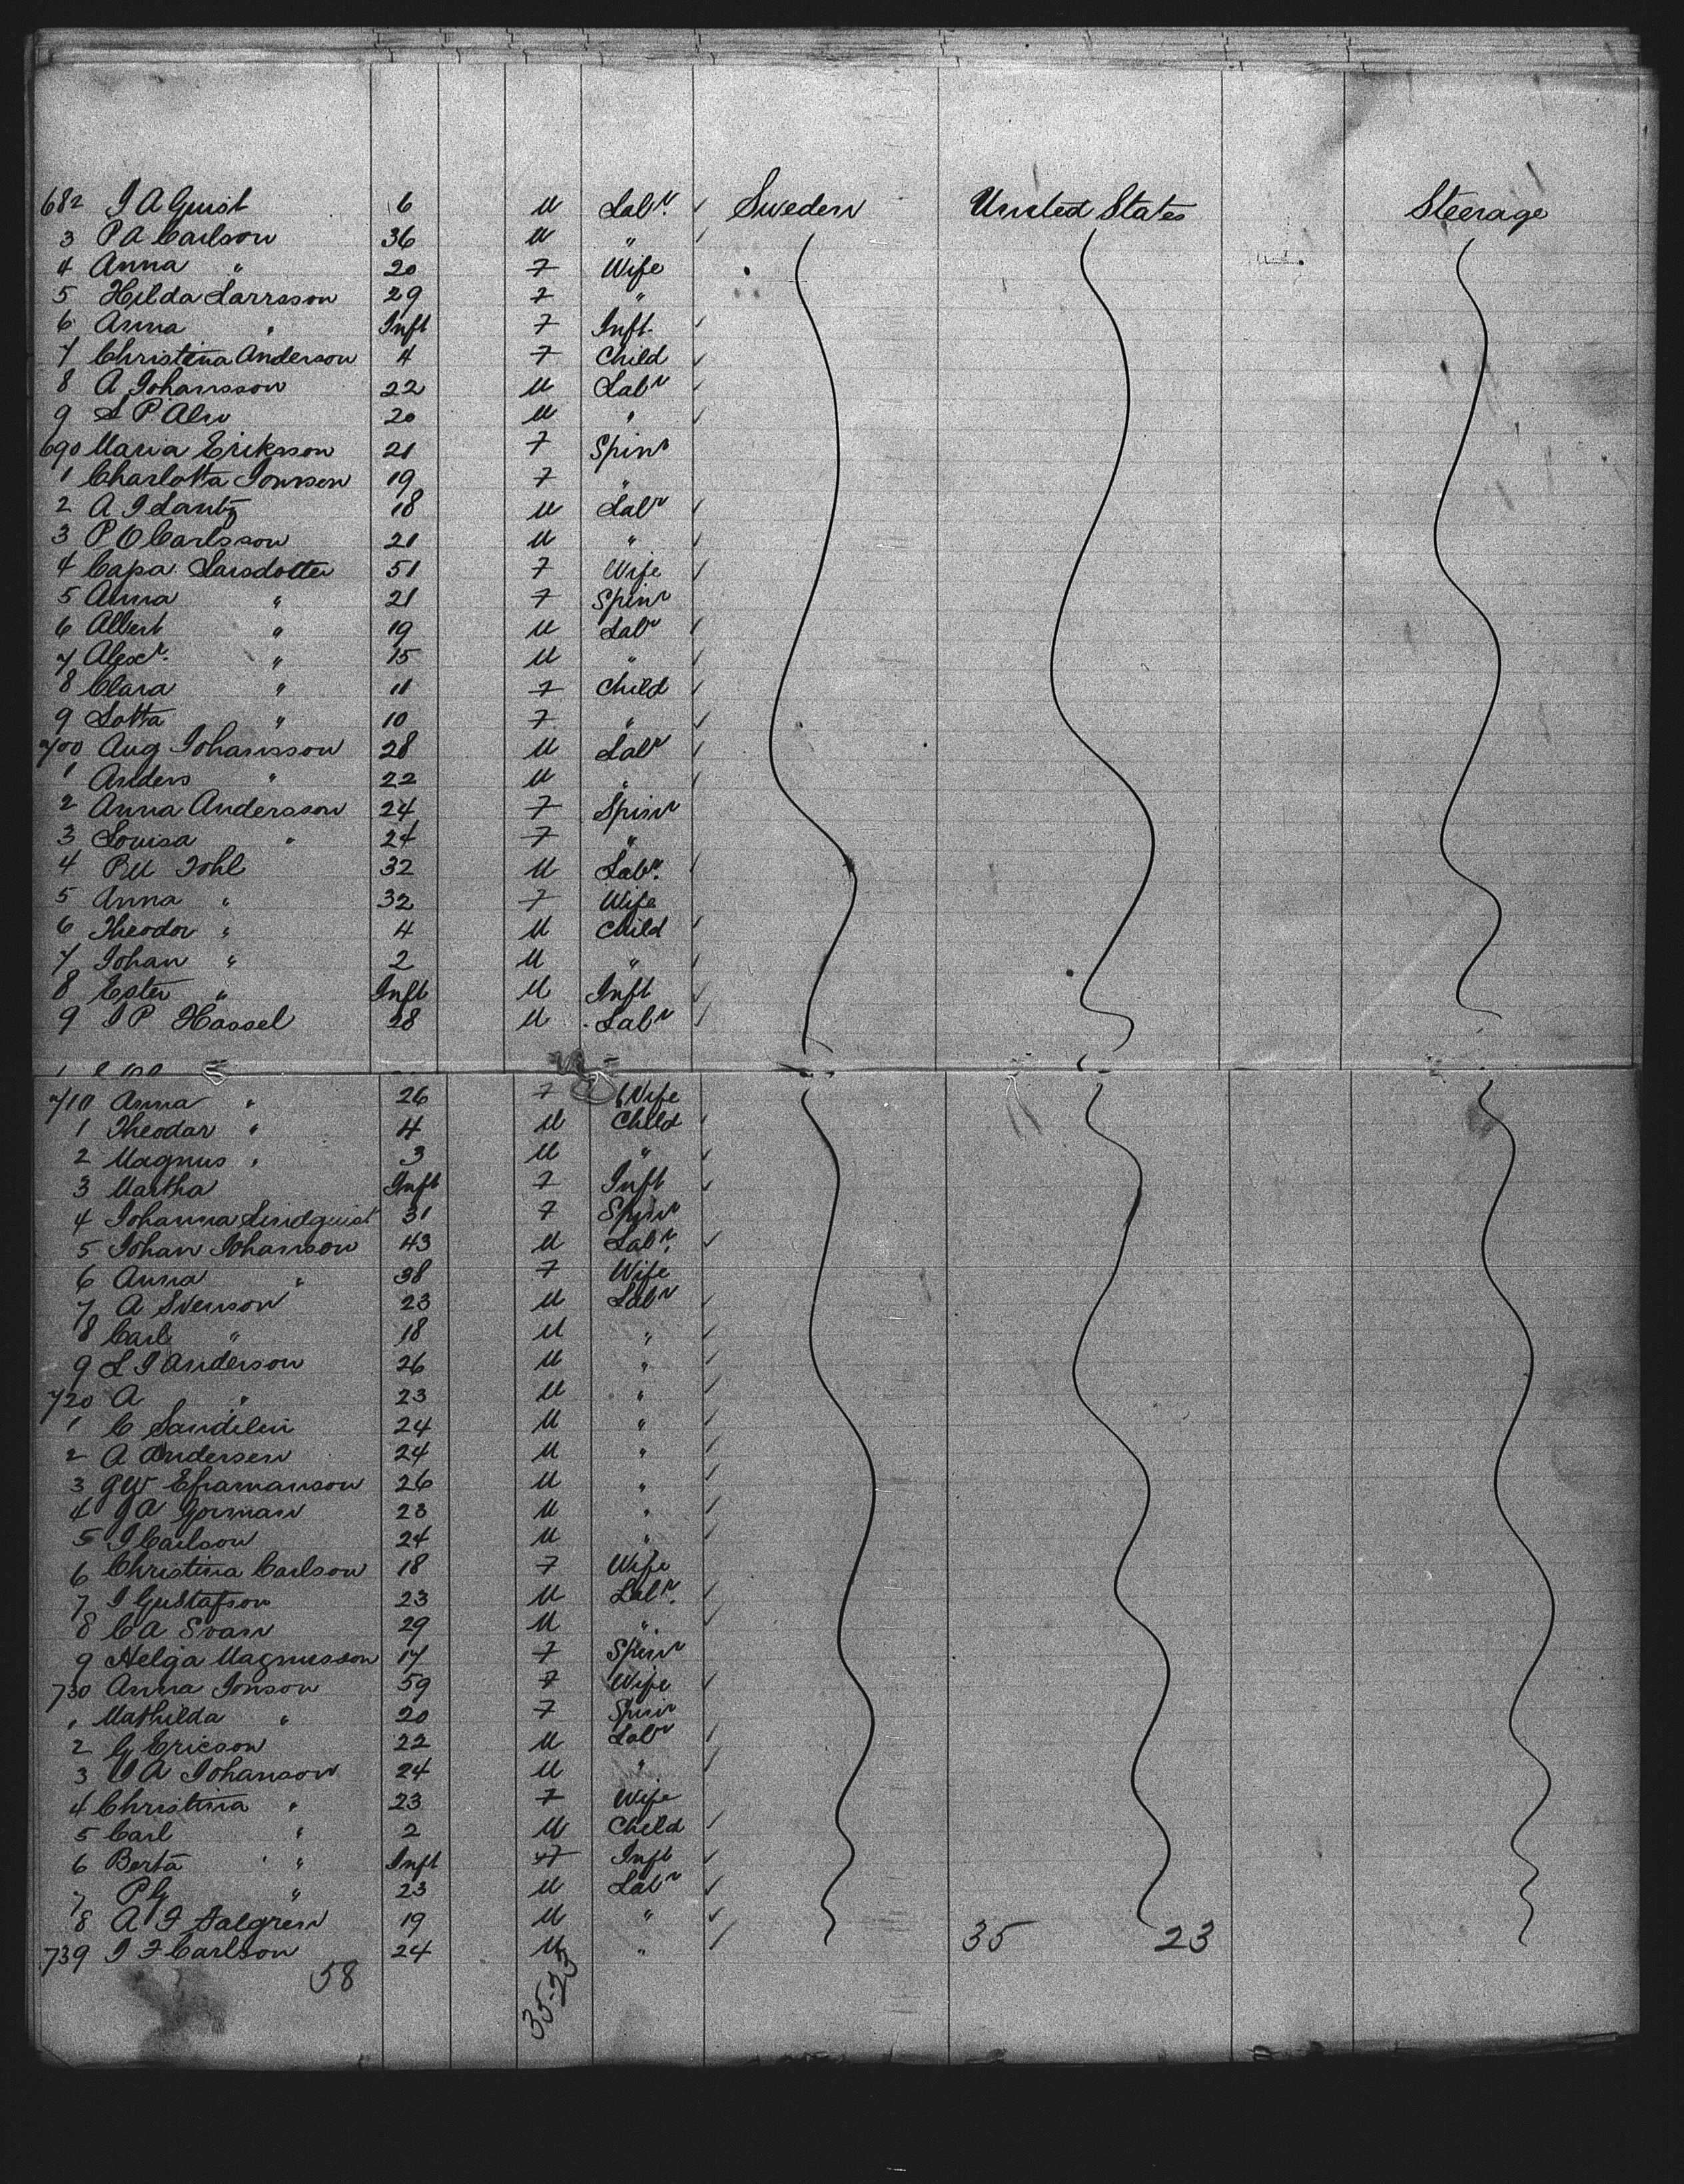 682 J A Quist 6 M Labr. ✓ Sweden United States Steerage
3 P A Carlson 36 M " ✓
4 Anna " 20 F Wife
5 Hilda Larrsson 29 F "
6 Anna " Inft F Inft. ✓
7 Christina Anderson 4 F Child ✓
8 A Johansson 22 M Labr ✓
9 S P Alm 20 M " ✓
690 Maria Eriksson 21 F Spinr
1 Charlotta Jonssen 19 F "
2 A J Lantz 18 M Labr ✓
3 P O Carlsson 21 M " ✓
4 Capa Larsdotter 51 F Wife ✓
5 Anna " 21 F Spinr
6 Albert " 19 M Labr ✓
7 Alexr. " 15 M " ✓
8 Clara " 11 F Child ✓
9 Lotta " 10 F " ✓
700 Aug Johansson 28 M Labr ✓
1 Anders " 22 M " ✓
2 Anna Andersson 24 F Spinr
3 Louisa " 24 F "
4 Johl 32 M Labr. ✓
5 Anna " 32 F Wife
6 Theodor " 4 M Child ✓
7 Johan " 2 M " ✓
8 Ester " Inft M Inft ✓
9 J P Hassel 28 M Labr ✓
710 Anna " 26 F Wife
1 Theodar " 4 M Child ✓
2 Magnus " 3 M " ✓
3 Martha Inft F Inft ✓
4 Johanna Lindquist 31 F Spinr
5 Johan Johanson 43 M Labr. ✓
6 Anna " 38 F Wife
7 A Svenson 23 M Labr ✓
8 Carl " 18 M " ✓
9 L J Anderson 26 M " ✓
720 A " 23 M " ✓
1 C Sandelin 24 M " ✓
2 A Andersen 24 M " ✓
3 G W Eframanson 26 M " ✓
4 J A Gorman 23 M " ✓
5 J Carlson 24 M " ✓
6 Christina Carlson 18 F Wife
7 J Gustafson 23 M Labr. ✓
8 C A Svan 29 M " ✓
9 Helga Magnusson 17 F Spinr
730 Anna Jonson 59 F Wife ✓
1 Mathilda " 20 F Spinr
2 G Ericson 22 M Labr ✓
3 J A Johanson 24 M " ✓
4 Christina " 23 F Wife
5 Carl " 2 M Child ✓
6 Berta " Inft F Inft ✓
7 P G " 23 M Labr ✓
8 A F Falgren 19 M " ✓
739 J F Carlson 24 M " ✓ 35 23
58 35-23